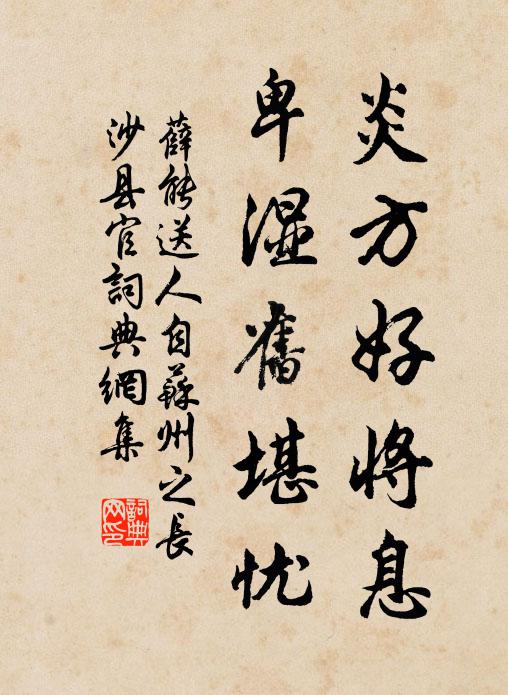 炎方好将息
卑湿旧堪忧
薛能送人自蘇州之長
沙县官詞典網集
詞典网印